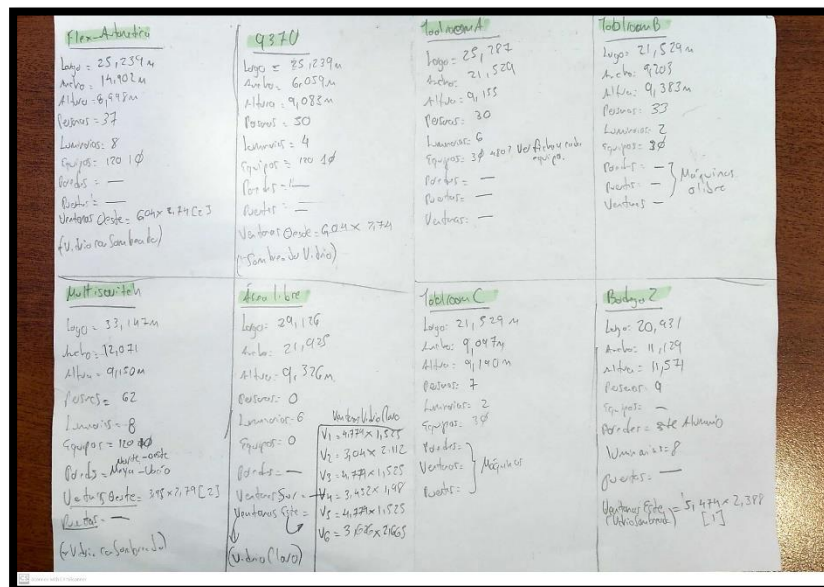 Flex-Automatico
Largo = 25,239 m
Ancho = 14,902 m
Altura = 8,948 m
Personas = 37
Luminarias = 8
Equipos = 120 1Φ
Paredes = —
Puertas = —
Ventanas Oeste = 6,04 x 2,74 [2]
(Vidrio con Sombreado)
9370
Largo = 25,239 m
Ancho = 6,059 m
Altura = 9,083 m
Personas = 30
Luminarias = 4
Equipos = 120 1Φ
Paredes = —
Puertas = —
Ventanas Oeste = 6,04 x 2,74
Toolroom A
Largo = 25,787
Ancho: 21,529
Altura: 9,155
Personas: 30
Luminarias = 6
Equipos: 3Φ 480? Ver ficha cada
equipo.
Paredes = —
Puertas = —
Ventanas: —
Toolroom B
Largo: 21,529 m
Ancho: 9,203
Altura: 9,383 m
Personas: 33
Luminarias: 2
Equipos: 3Φ
Paredes: —
Puertas: —
Ventanas —
Máquinas
o libre
Multiswitch
Largo = 33,147 m
Ancho = 12,071
Altura = 9,150 m
Personas = 62
Luminarias = 8
Equipos = 120 1Φ
Norte-oeste
Paredes =
Ventanas Oeste = 3,95 x 2,79 [2]
Puertas = —
(Vidrio con Sombreado)
Área libre
Largo: 29,126
Ancho: 21,925
Altura: 9,326 m
Personas: 0
Luminarias: 6
Equipos: 0
Paredes: —
Ventanas Sur =
Ventanas Este =
(Vidrio Claro)
Ventanas Vidrio Claro
V1 = 4,774 x 1,525
V2 = 3,04 x 2,112
V3 = 4,774 x 1,525
V4 = 3,432 x 1,98
V5 = 4,774 x 1,525
V6 = 3,626 x 2,665
Toolroom C
Largo: 21,529 m
Ancho: 9,047 m
Altura: 9,140 m
Personas: 7
Luminarias: 2
Equipos: 3Φ
Paredes:
Ventanas:
Puertas:
Máquinas
Bodega 2
Largo: 20,931
Ancho: 11,129
Altura: 11,571
Personas: 9
Equipos: —
Paredes = este Aluminio
Luminarias = 8
Puertas: —
Ventanas Este = 5,474 x 2,388
(Vidrio Sombreado) [1]